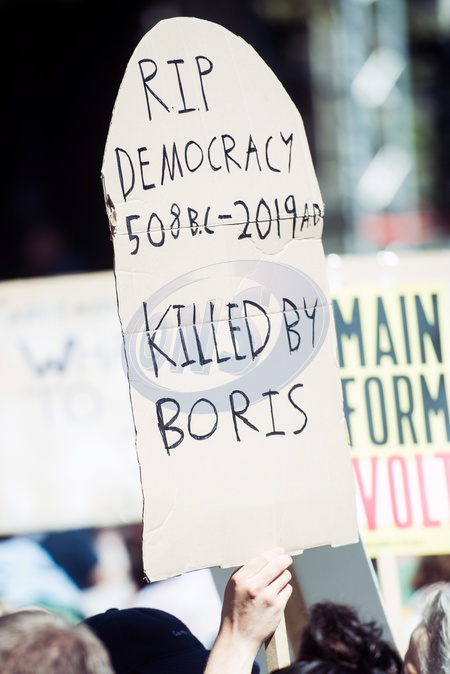 R.I.P
DEMOCRACY
508B.C-2019AD
KILLED BY
BORIS
MAIN
FORM
VOLT